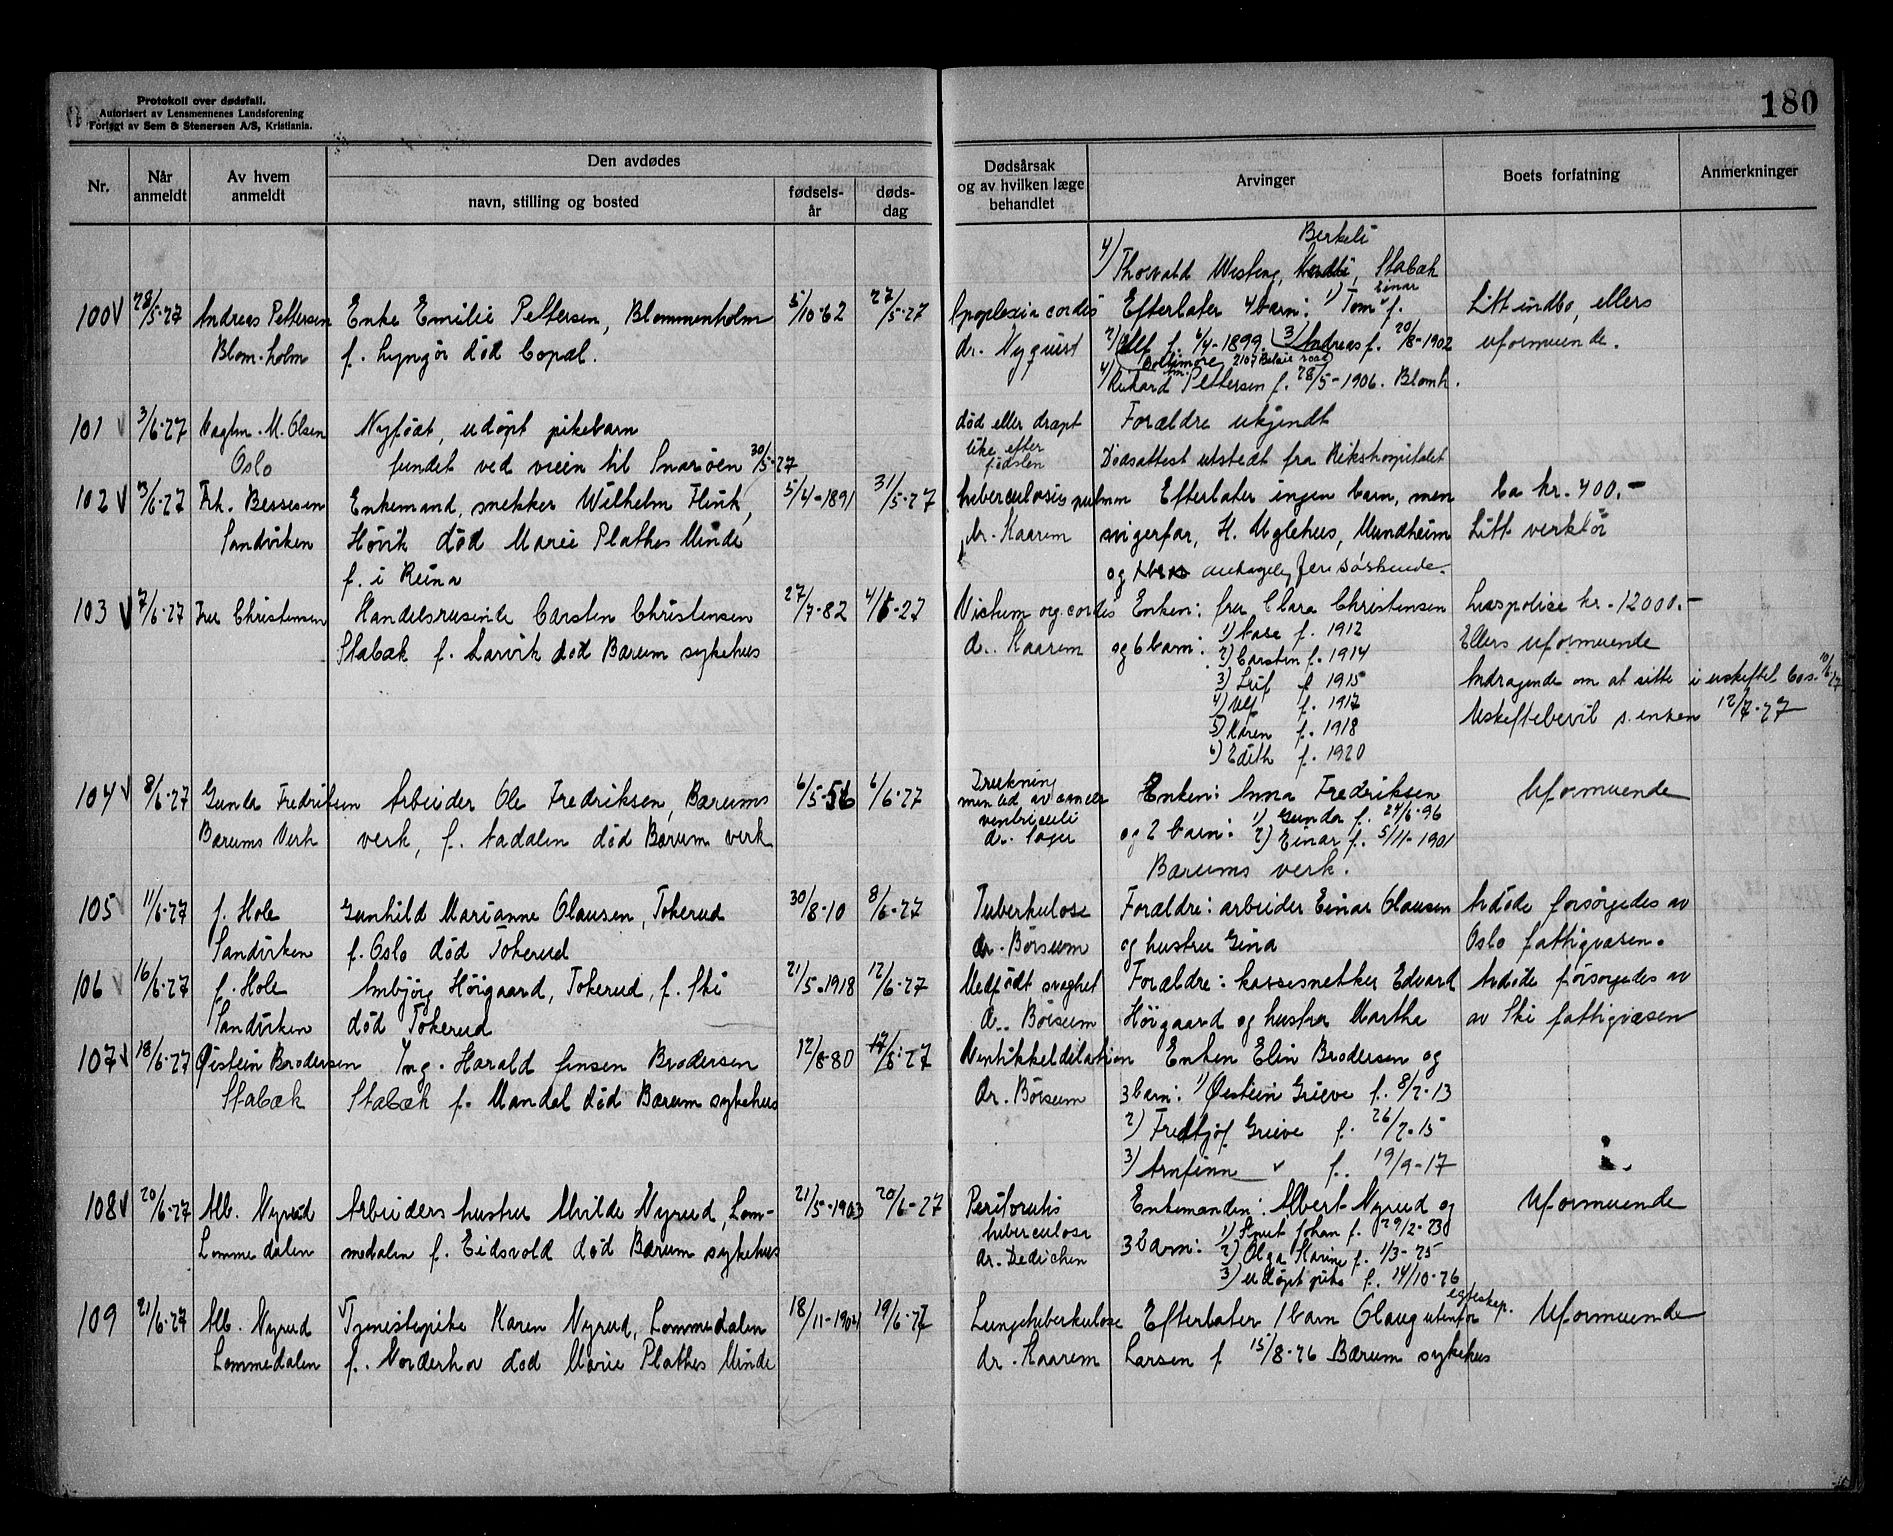 Protokoll over dødsfall.
Autorisert av Lensmennenes Landsforening
Forlagt av Sem & Stenersen A/S, Kristiania.
180
Nr.
Når anmeldt
Av hvem anmeldt
Den avdødes
navn, stilling og bosted
fødsels-år
døds-dag
Dødsårsak og av hvilken læge behandlet
Arvinger
Boets forfatning
Anmerkninger
Berkeli
4) Thorvald Westeng, Stabæk
100 V 28/5-27 Andreas Pettersen Enke Emilie Pettersen, Blommenholm 5/10-62 27/5-27 Apoplexia cordis Efterlater 4 barn: 1) Tom Einar f. Litt indbo, ellers
Blom.holm f. Lyngör död Copal. dr. Nyquist 2) Alf f. 6/4-1899. 3) Andreas f. 20/8-1902 uformuende.
Baltimore 2107 Belair road
4) Rikard Pettersen f. 28/5-1906. Blomh.
101 V 3/6-27 Vagtm. M. Olsen Nyfödt, udöpt pikebarn död eller dræpt Forældre ukjendt
Oslo fundet ved veien til Snaröen 30/5-27 like efter fødslen Dödsattest utstedt fra Rikshospitalet
102 V 3/6-27 Frk. Bessesen Enkemand, snekker Wilhelm Flink, 5/4-1891 31/5-27 tuberculosis pulmon Efterlater ingen barn, men Ca kr. 400.-
Sandviken Hövik död Marie Plathes Minde dr. Kaarem svigerfar, H. Uglehus, Mundheim Litt verktöi
f. i og antagelig flere söskende.
103 V 7/6-27 Fru Christensen Handelsreisende Carsten Christensen 27/7-82 4/6-27 Vitium org. cordis Enken: fru Clara Christensen Livspolise kr. 12000.-
Stabæk f. Larvik död Bærum sykehus d.. Kaarem og 6 barn: 1) Aase f. 1912 Ellers uformuende
2) Carsten f. 1914
3) Leif f 1915 Andragende om at sitte i uskiftet bo s. 10/6-27
4) Ulf f. 1917
5) Karen f. 1918 Uskiftebevil s. enken 12/7-27
6) Edith f. 1920
104 V 8/6-27 Gunda Fredriksen Arbeider Ole Fredriksen, Bærums 6/5-56 6/6-27 Drukning Enken: Anna Fredriksen Uformuende
Bærums Verk verk, f. Aadalen död Bærum verk men led av cancer ventriculi dr. Lager og 2 barn: 1) Gunda f. 24/6-96
2) Einar f. 5/11-1901
Bærums verk.
105 V 11/6-27 f. Hole Gunhild Marianne Olausen, Tokerud 30/8-10 8/6-27 Tuberkulose Forældre: arbeider Einar Olausen Avdöde forsörgedes av
Sandviken f. Oslo död Tokerud dr. Börsum og hustru Gina Oslo fattigvæsen.
106 V 16/6-27 f. Hole Ambjörg Höigaard, Tokerud, f. Ski 21/5-1918 12/6-27 Medfödt svaghet Forældre: kassesnekker Edvard Avdöde forsörgedes av
Sandviken död Tokerud d.. Börsum Höigaard og hustru Martha av Ski fattigvæsen
107 V 18/6-27 Øistein Brodersen Ing. Harald Jensen Brodersen 12/8-80 17/6-27 Ventrikkeldilation Enken Elin Brodersen og
Stabæk Stabæk f. Mandal död Bærum sykehus dr. Börsum 3 barn: 1) Øistein Grieve f. 8/2-13
2) Fredtjof Grieve f. 26/2-15
3) Arnfinn " f.. 19/9-17
108 V 20/6-27 Alb. Nyrud Arbeiders hustru Alvilde Nyrud, Lom- 21/5-1903 20/6-27 Peritonitis Enkemanden: Albert Nyrud og Uformuende
Lommedalen medalen f. Eidsvold död Bærum sykehus tuberculose dr. Dedichen 3 barn: 1) Knut Johan f. 29/2-23
2) Olga Karine f. 1/3-25
3) udöpt pike f. 14/10-26
109 21/6-27 Alb. Nyrud Tjenestepike Karen Nyrud, Lommedalen 18/11-1904 19/6-27 Lungetuberkulose Efterlater 1 barn Olaug utenfor egteskap. Uformuende
Lommedalen f. Norderhov död Marie Plathes Minde dr. Kaarem Larsen f 15/8-26 Bærum sykehus